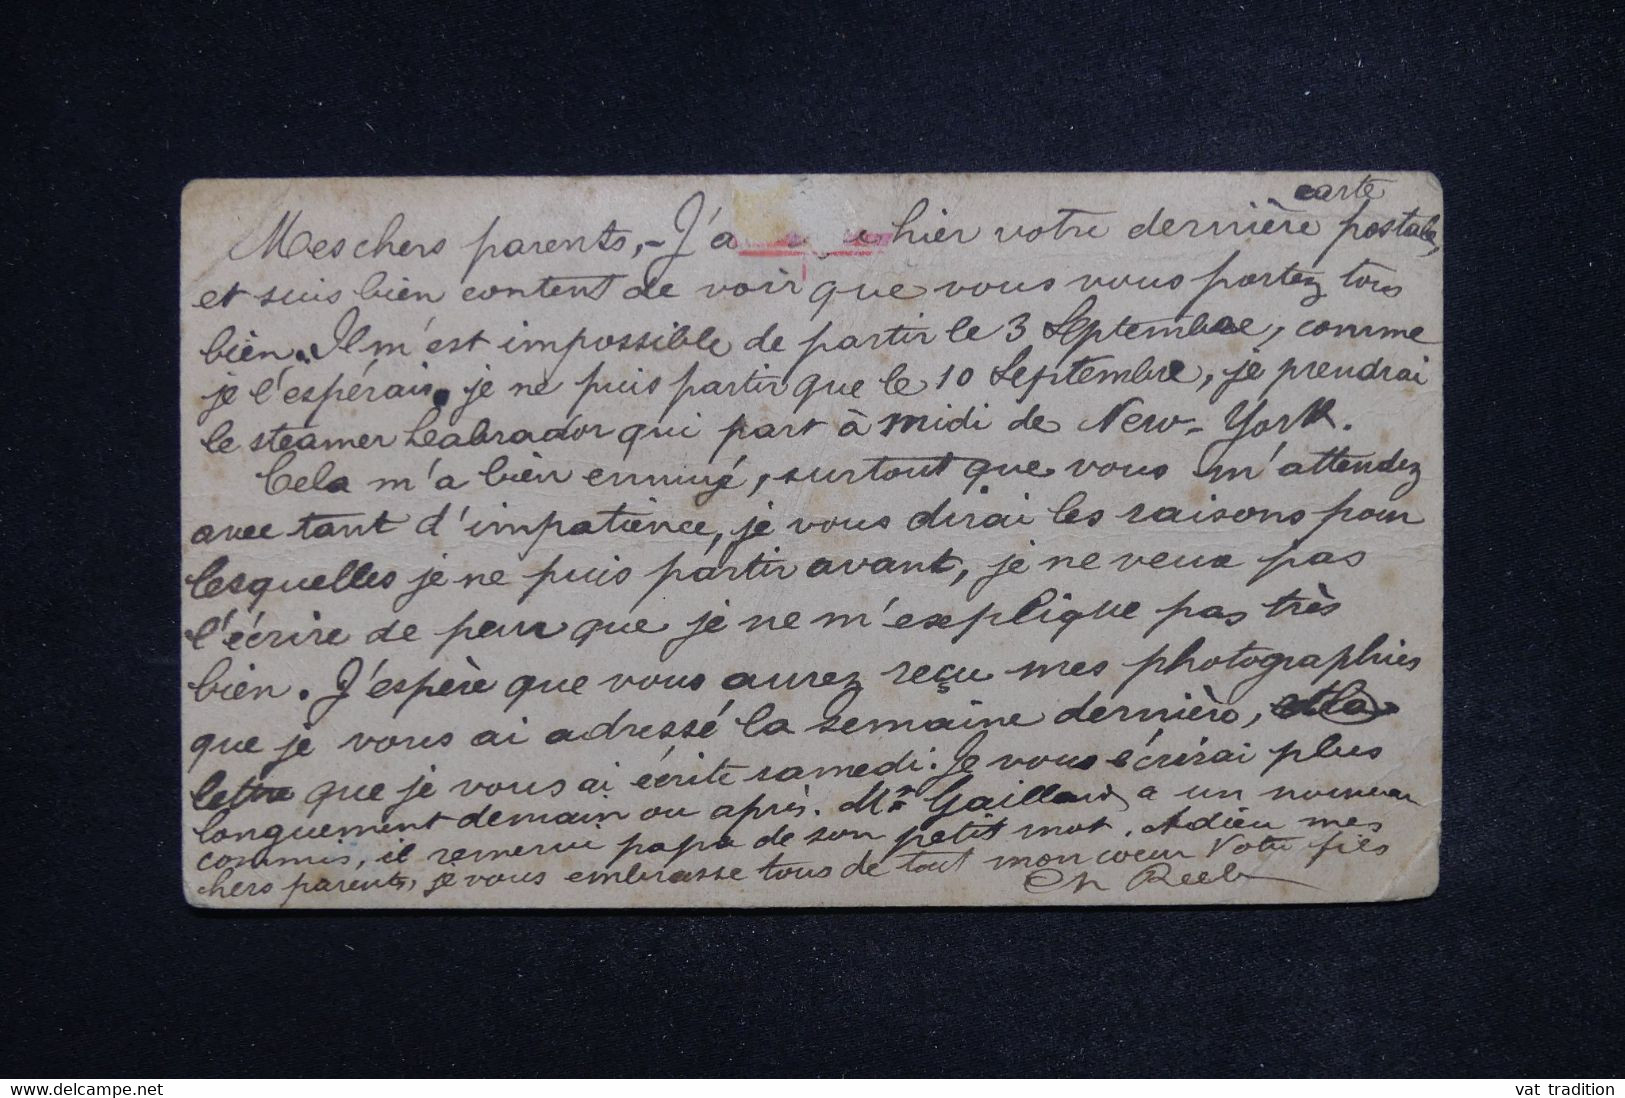 carte
Mes chers parents, – J'a hier votre dernière postale,
et suis bien content de voir que vous vous portez tous
bien. Il m'est impossible de partir le 3 Septembre, comme
je l'espérais. je ne puis partir que le 10 Septembre, je prendrai
le steamer Labrador qui part à midi de New-York.
Cela m'a bien ennuyé, surtout que vous m'attendez
avec tant d'impatience, je vous dirai les raisons pour
lesquelles je ne puis partir avant, je ne veux pas
l'écrire de peur que je ne m'explique pas très
bien. J'espère que vous aurez reçu mes photographies
que je vous ai adressé la semaine dernière, et la
lettre que je vous ai écrite samedi. Je vous écrirai plus
longuement demain ou après. Mr Gaillard a un nouveau
commis, il remercie papa de son petit mot. Adieu mes
chers parents, je vous embrasse tous de tout mon coeur Votre fils
Ch Reeb
www.delcampe.net
vat_tradition